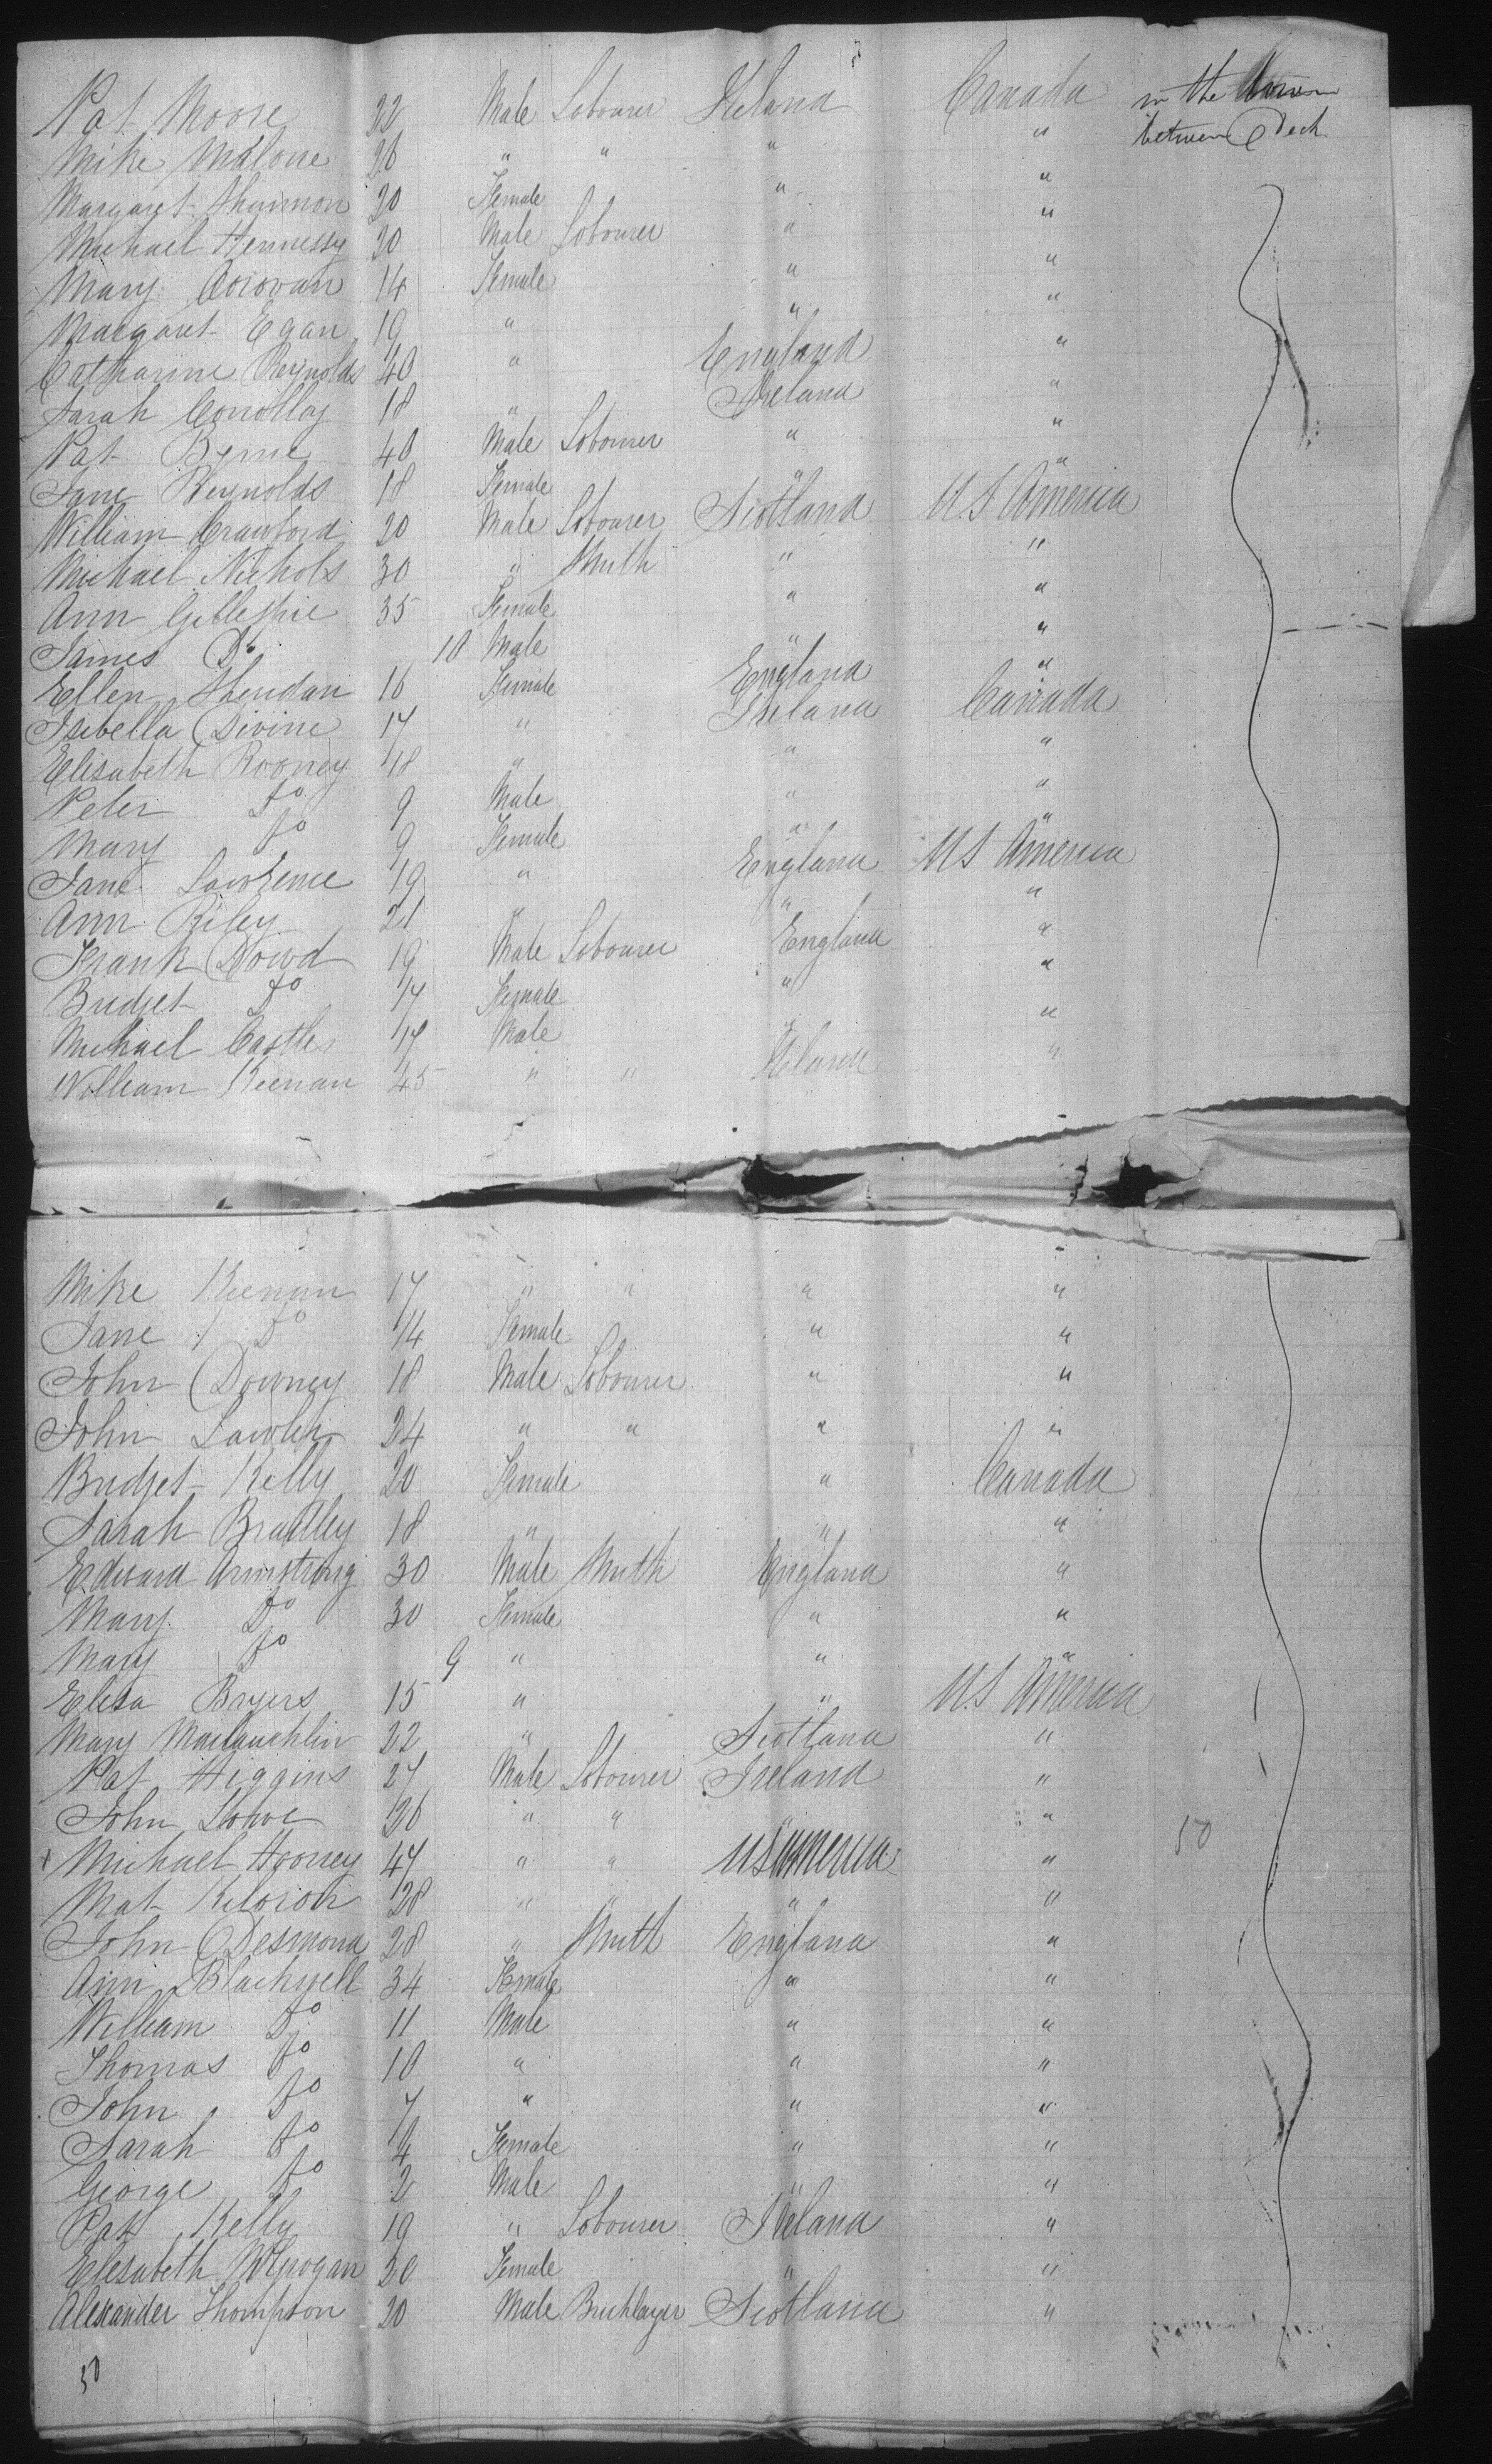 Pat Moore 22 Male Labourer Ireland Canada in the
Mike Malone 26 " " " " between Deck
Margaret Shannon 20 Female " "
Michael Hennessy 20 Male Labourer " "
Mary Donovan 14 Female " "
Margaret Egan 19 " " "
Catharine Reynolds 40 " England "
Sarah Conollay 18 " Ireland "
Pat Byrne 40 Male Labourer " "
Jane Reynolds 18 Female " "
William Crawford 20 Male Labourer Scotland U.S America
Michael Nichols 30 " Smith " "
Ann Gillespie 35 Female " "
James Do 10 Male " "
Ellen Sheridan 16 Female England "
Isabella Divine 17 " Ireland Canada
Elisabeth Rooney 18 " " "
Peter Do 9 Male " "
Mary Do 9 Female " "
Jane Lawrence 19 " England U S America
Ann Riley 21 " " "
Frank Dowd 19 Male Labourer England "
Bridget Do 17 Female " "
Michael Castle 17 Male " "
William Keenan 45 " " Ireland "
Mike Keenan 17 " " " "
Jane Do 14 Female " "
John Downey 18 Male Labourer " "
John Lawler 24 " " " "
Bridget Kelly 20 Female " Canada
Sarah Bradley 18 " " "
Edward Armstrong 30 Male Smith England "
Mary Do 30 Female " "
Mary Do 9 " " "
Elisa Bryers 15 " " U.S America
Mary Maclauchlin 22 " Scotland "
Pat Higgins 27 Male Labourer Ireland "
John Lowe 26 " " " "
x Michael Hooney 47 " " U S America " 50
Mat 28 " " " "
John Desmond 28 " Smith England "
Ann Blackwell 34 Female " "
William Do 11 Male " "
Thomas Do 10 " " "
John Do 7 " " "
Sarah Do 4 Female " "
George Do 2 Male " "
Pat Kelly 19 " Labourer Ireland "
Elisabeth 20 Female " "
Alexander Thompson 20 Male Bricklayer Scotland "
50